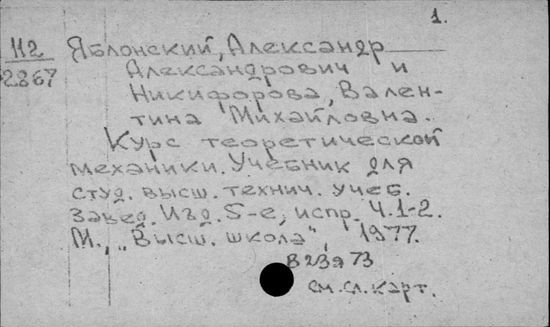 1.
112 Яблонский, Александр
2867 Александрович и
Никифорова, Вален-
тина Михайловна.
Курс теоретической
механики. Учебник для
студ. высш. технич. учеб.
завед. Изд. 5-е, испр. Ч.1-2.
М., „Высш. школа", 1977.
В23я73
См.сл.карт.